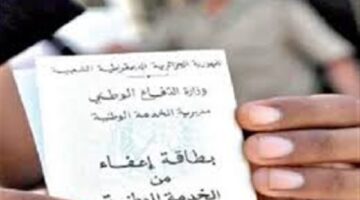 الجمهورية الجزائرية الديمقراطية الشعبية
وزارة الدفاع الوطني
مديرية الخدمة الوطنية
بطاقة إعفاء
من
الخدمة الوطنية